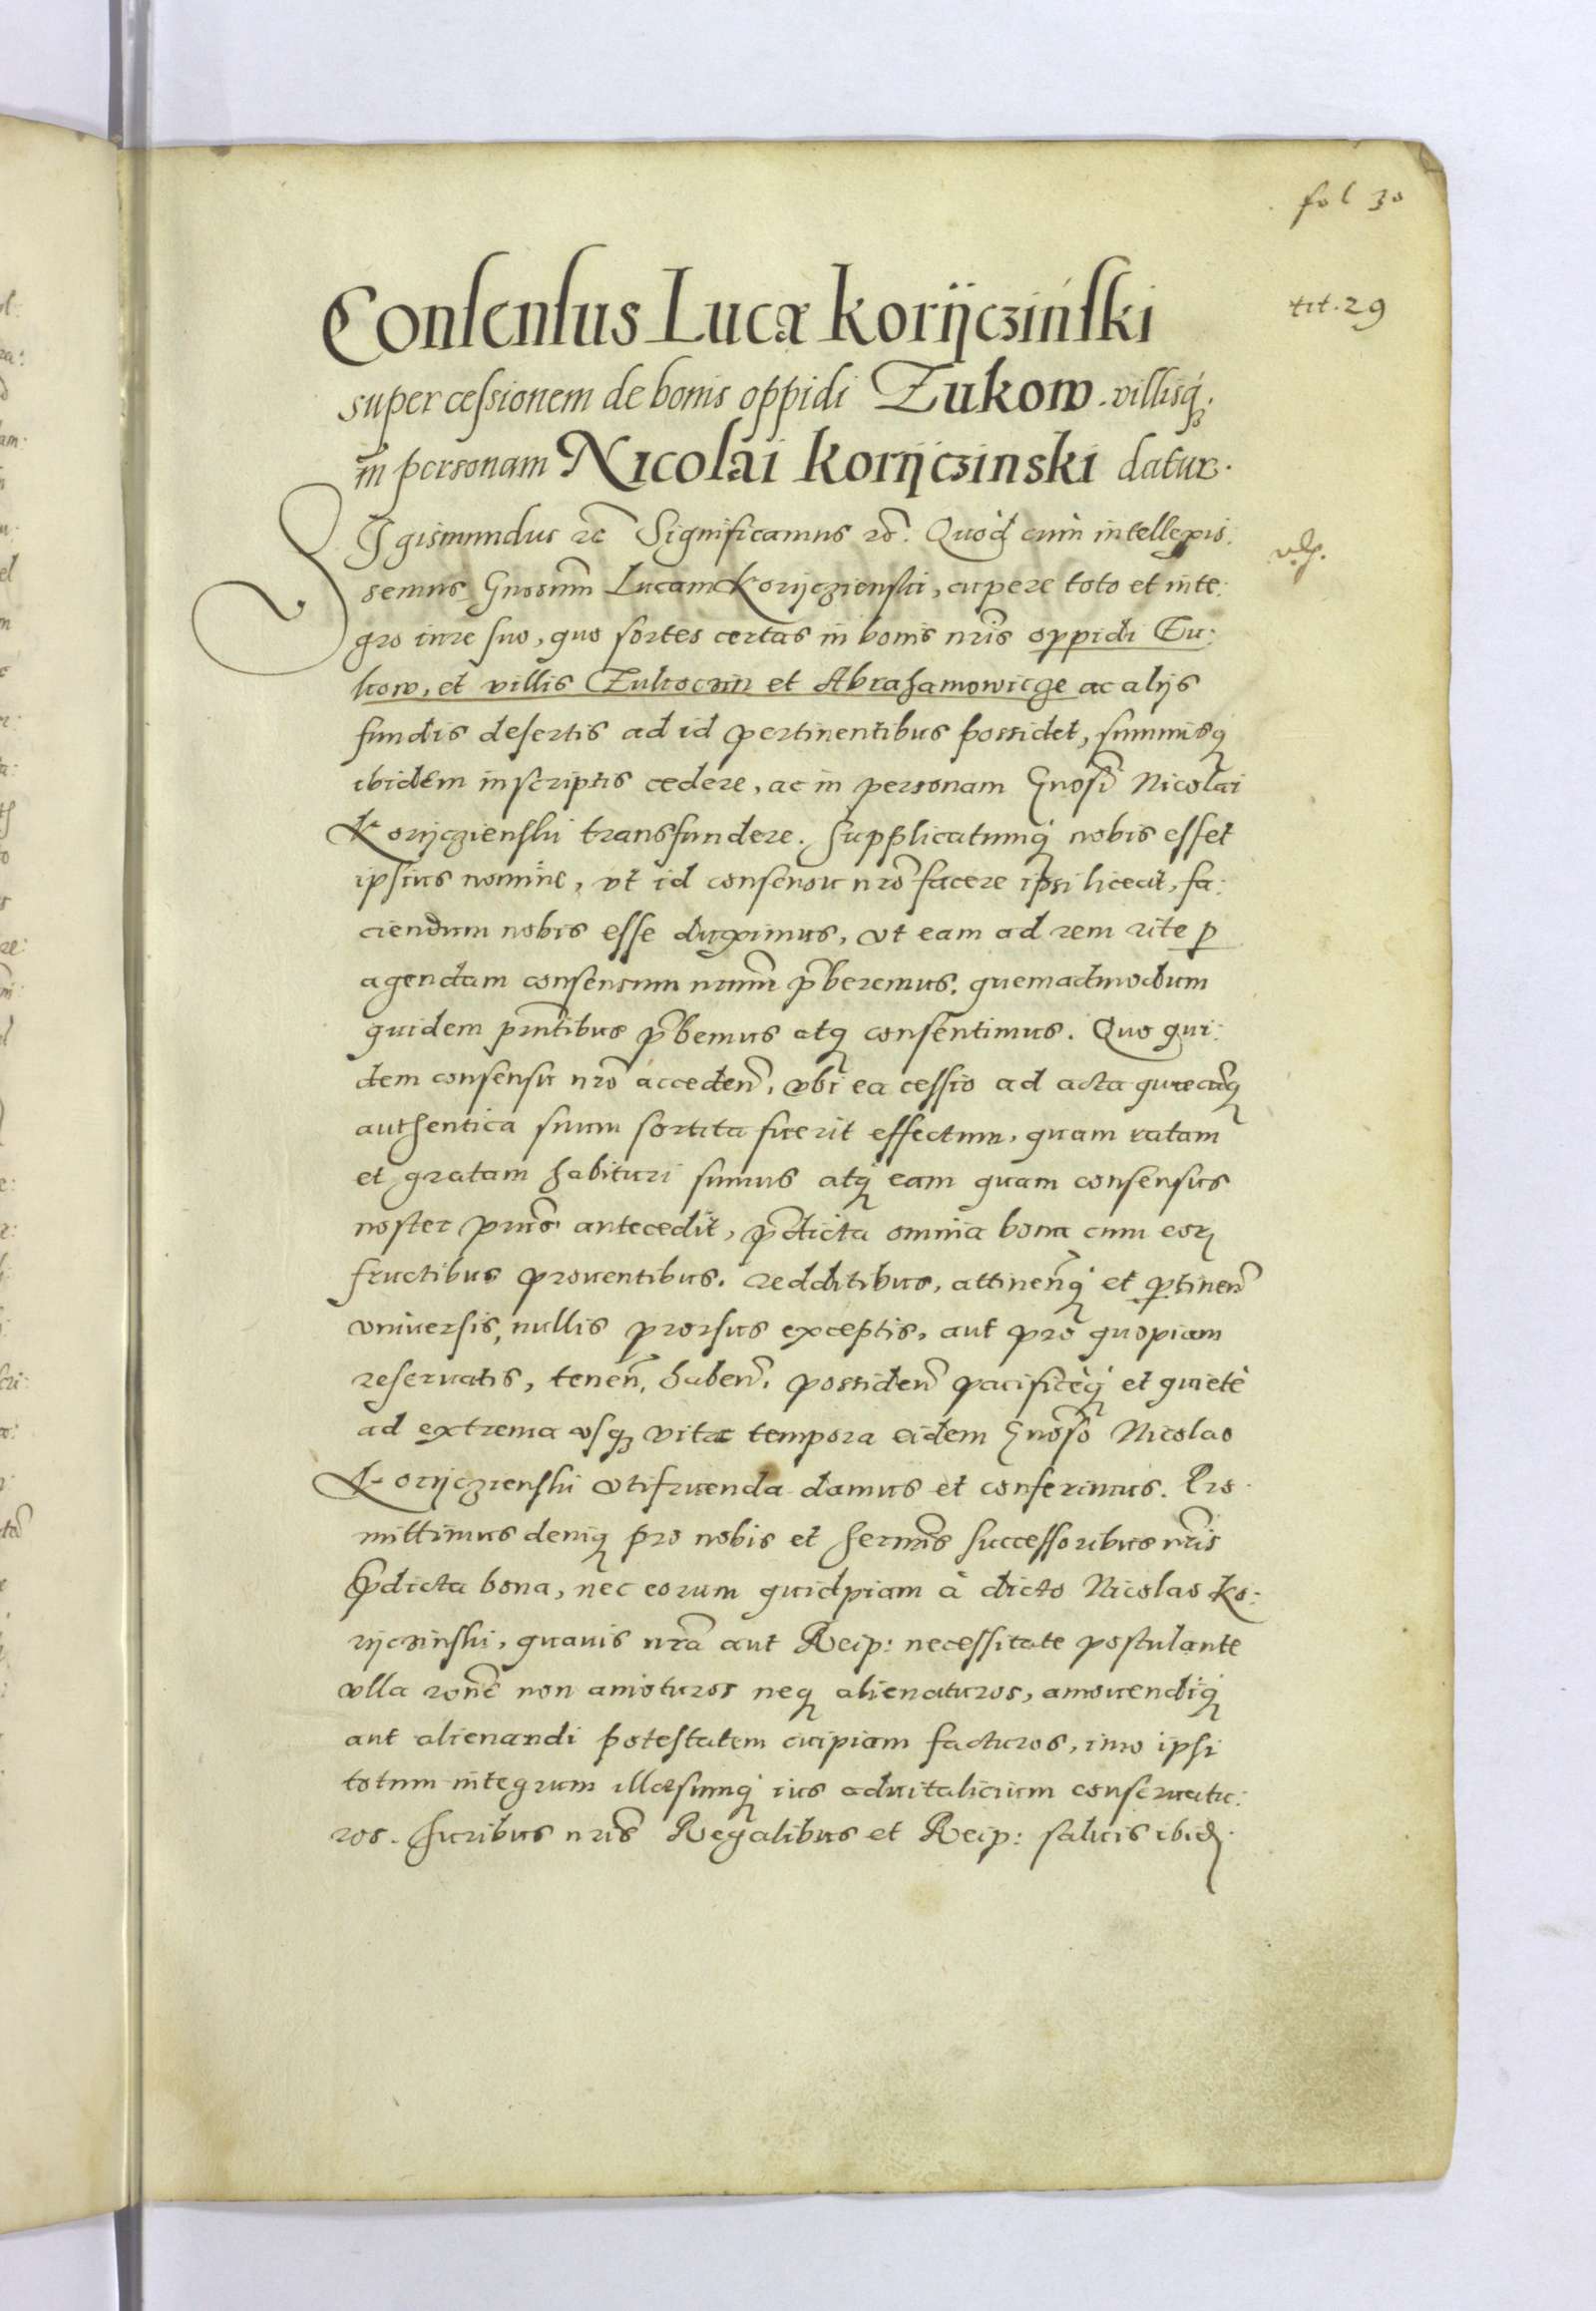 fol 30
tit. 29
Consensus Lucæ Korijcziński
super cessionem de bonis oppidi Zukow villisq́;
in personam Nicolai Korijczinski datur.
Sigismundus rc̃ Significamus rc̃. Quòd cùm intellexis:
semus Gnosum̃ Lucam Korijczienski, cupere toto et inte:
gro iure suo, quo sortes certas in bonis nr̃is oppidi Cu:
kow, et villis Czukoczin et Abrahamowicze ac alijs
fundis desertis ad id pertinentibus possidet, summisq́
ibidem inscriptis cedere, ac in personam Gnosi̇̃ Nicolai
Korijczienski transfundere. Supplicatumq́ nobis esset
ipsius nomine, vt id consensu nr̃o facere ipsi liceat, fa:
ciendum nobis esse duximus, vt eam ad rem rite p
agendam consensum nrum̃ p̃beremus. quemadmodum
quidem pñtibus p̃bemus atq́ consentimus. Quo qui:
dem consensu nr̃o acceden̄, vbi ea cessio ad acta quæcũq́
authentica suum sortita fuerit effectum, quam ratam
et gratam habituri sumus atq́ eam quam consensus
noster antecedit, p̃dicta omnia bona cum eor̨
fructibus prouentibus, redditibus, attinen̄q́ et ptinen̄
vniuersis, nullis prorsus exceptis, aut pro quopiam
reseruatis, tenen̄, haben̄, possiden̄ pacificèq́ et quietè
ad extrema vsq́ vitæ tempora eidem Gnoso̅ Nicolao
Korijczienski vtifruenda damus et conferimus. Pro
mittimus deniq́ pro nobis et Sermis̃ successoribus nr̃is
p̃dicta bona, nec eorum quidpiam à dicto Nicolao Ko:
rijczinski, quauis nr̃a aut Reip: necessitate postulante
vlla ron̄e non amoturos neq́ alienaturos, amouendiq́
aut alienandi potestatem cuipiam facturos, imo ipsi
totum integrum illæsumq́ ius aduitalicium conseruatu:
ros. Iuribus nr̃is Regalibus et Reip: saluis ibid̨.